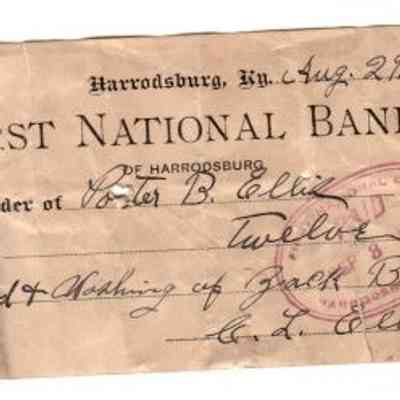 Harrodsburg, Ky. Aug. 29
RST NATIONAL BANK
OF HARRODSBURG
der of Porter B. Ellis
Twelve
d & Washing of Zack B
C. L. Ell
PAID
HARRODSB